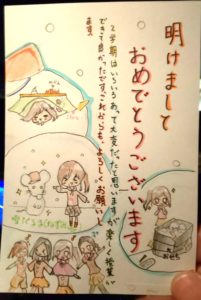 明けまして
おめでとうございます
2学期はいろいろあって大変だったと思いますが、楽しく授業が
できて良かったです。これからも、よろしくお願いし
ます。
おせち